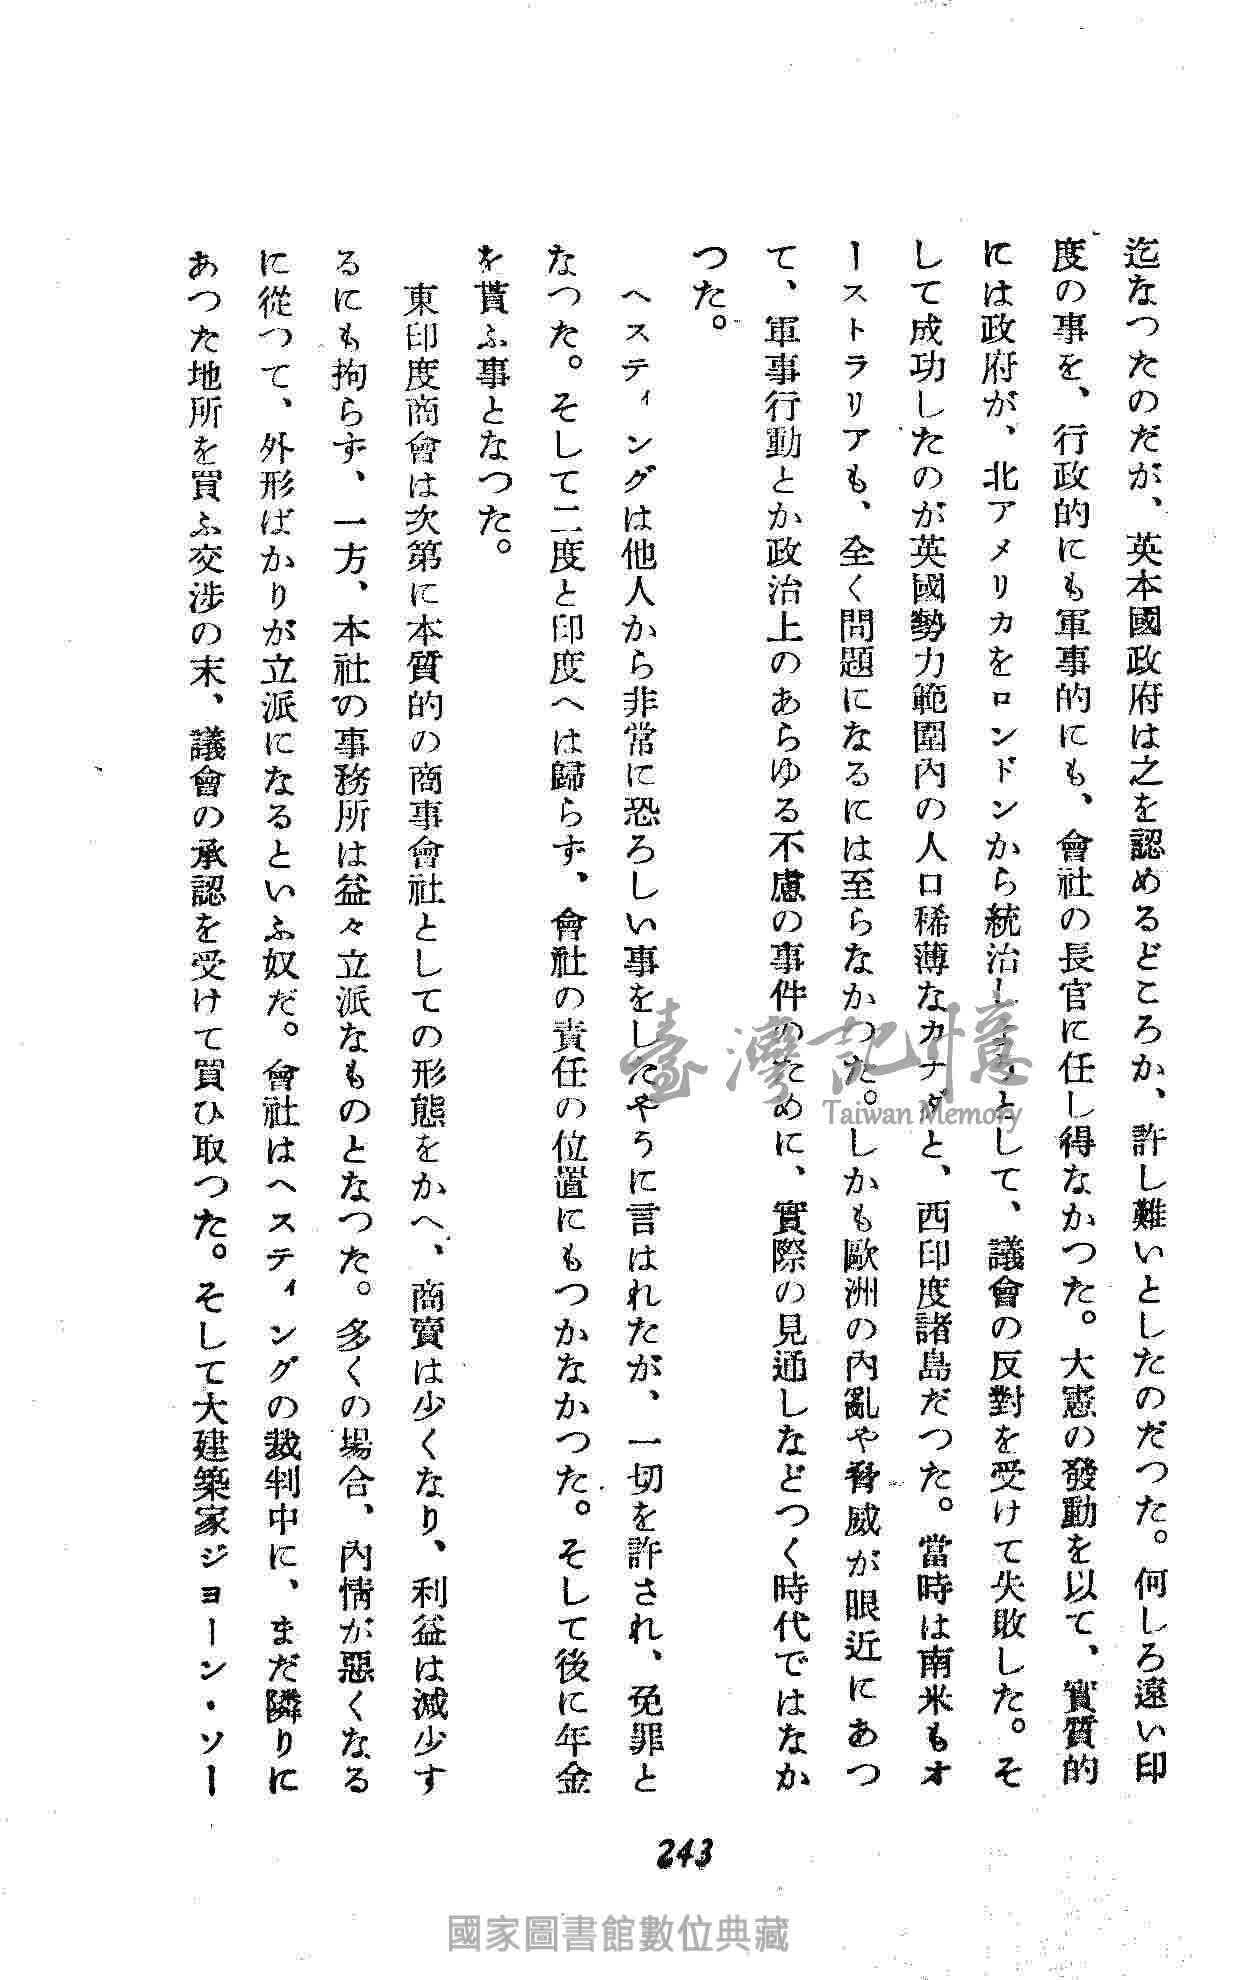 迄なつたのだが、英本國政府は之を認めるどころか、許し難いとしたのだつた。何しろ遠い印
度の事を、行政的にも軍事的にも、會社の長官に任し得なかつた。大憲の發動を以て、實質的
には政府が、北アメリカをロンドンから統治しようとして、議會の反對を受けて失敗した。そ
して成功したのが英國勢力範圍內の人口稀薄なカナダと、西印度諸島だつた。當時は南米もオ
ーストラリアも、全く問題になるには至らなかつた。しかも歐洲の內亂や脅威が眼近にあつ
て、軍事行動とか政治上のあらゆる不慮の事件のために、實際の見通しなどつく時代ではなか
つた。
ヘスティングは他人から非常に恐ろしい事をしたやうに言はれたが、一切を許され、免罪と
なつた。そして二度と印度へは歸らず、會社の責任の位置にもつかなかつた。そして後に年金
を貰ふ事となつた。
東印度商會は次第に本質的の商事會社としての形態をかへ、商賣は少くなり、利益は減少す
るにも拘らず、一方、本社の事務所は益々立派なものとなつた。多くの場合、內情が惡くなる
に從つて、外形ばかりが立派になるといふ奴だ。會社はヘスティングの裁判中に、まだ隣りに
あつた地所を買ふ交渉の末、議會の承認を受けて買ひ取つた。そして大建築家ジョーン・ソー
243
臺灣記憶
Taiwan Memory
國家圖書館數位典藏